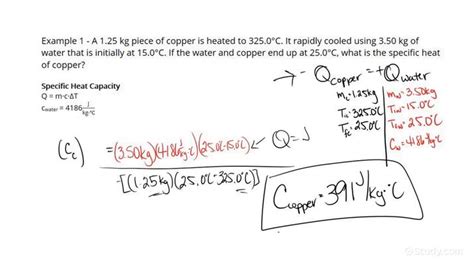 Example 1 - A 1.25 kg piece of copper is heated to 325.0°C. It rapidly cooled using 3.50 kg of
water that is initially at 15.0°C. If the water and copper end up at 25.0°C, what is the specific heat
of copper?
Specific Heat Capacity
Q = m·c·ΔT
c_water = 4186 J/kg·°C
→ - Q_copper = + Q_water
m_c = 1.25kg
T_ic = 325.0°C
T_fc = 25.0°C
m_w = 3.50kg
T_iw = 15.0°C
T_fw = 25.0°C
c_w = 4186 J/kg·°C
(C_c) = (3.50kg)(4186 J/kg·°C)(25.0°C-15.0°C)
-[(1.25kg)(25.0°C-325.0°C)]
Q = J
C_copper = 391 J/kg·°C
Study.com